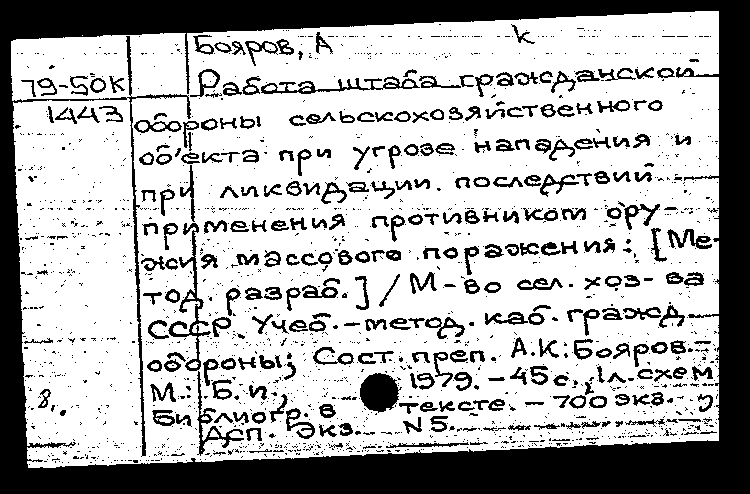 Бояров, А k
79-50к Работа штаба гражданской
1443 обороны сельскохозяйственного
об'екта при угрозе нападения и
при ликвидации последствий
применения противником ору-
жия массового поражения: [Ме-
тод. разраб.] / М-во сел. хоз-ва
СССР. Учеб.-метод. каб. гражд.
обороны; Сост. преп. А.К. Бояров.-
М.: Б.и., 1979. - 45с., 1л. схем
8,. Библиогр. в тексте. - 700 экз.
Дсп. Экз. N5.